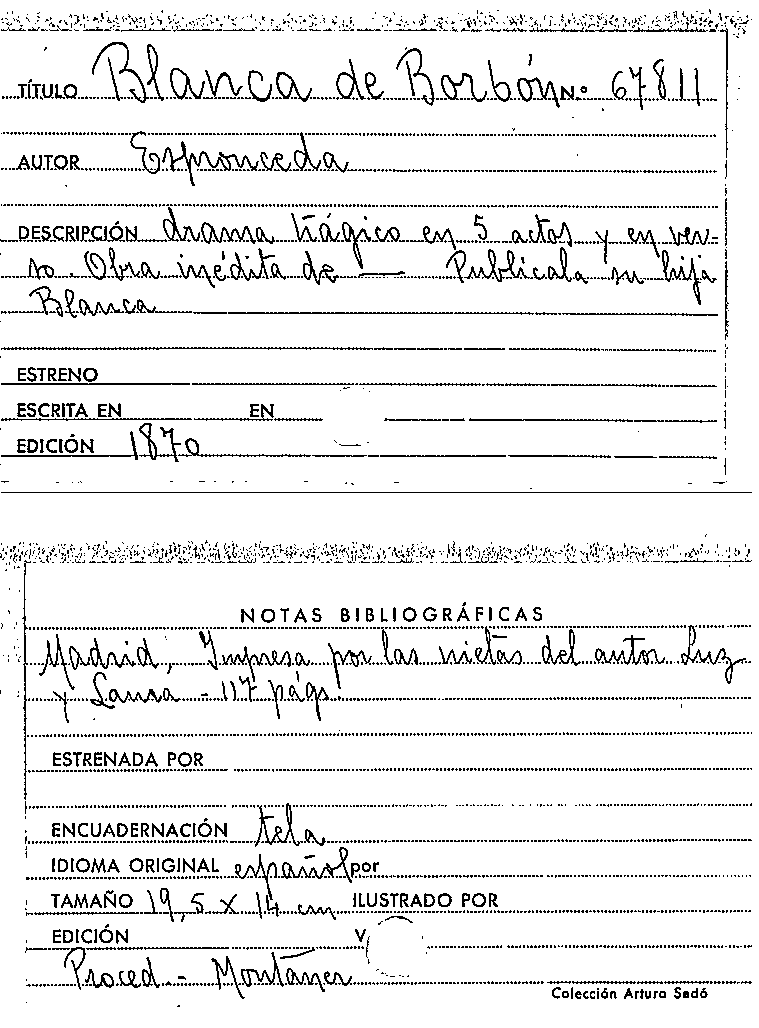 TÍTULO Blanca de Borbón Nº 67811
AUTOR Espronceda
DESCRIPCIÓN drama trágico en 5 actos y en ver-
so. Obra inédita de — Publícala su hija
Blanca
ESTRENO
ESCRITA EN EN
EDICIÓN 1870
NOTAS BIBLIOGRÁFICAS
Madrid, Impresa por las nietas del autor Luz
y Laura - 117 págs.
ESTRENADA POR
ENCUADERNACIÓN tela
IDIOMA ORIGINAL español por
TAMAÑO 19,5 x 14 cm ILUSTRADO POR
EDICIÓN V
Proced - Montaner
Colección Arturo Sedó